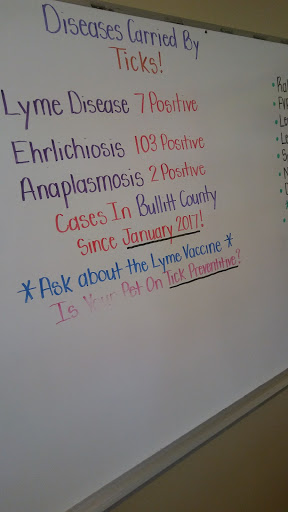 Diseases Carried By
Ticks!
Lyme Disease 7 Positive
Ehrlichiosis 103 Positive
Anaplasmosis 2 Positive
Cases In Bullitt County
Since January 2017!
*Ask about the Lyme Vaccine*
Is Your Pet On Tick Preventitive?